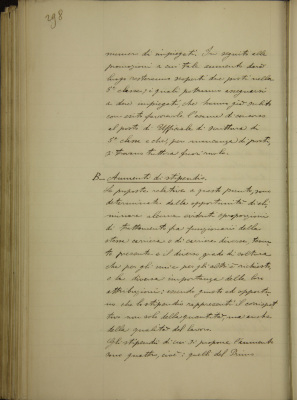 298
numero di impiegati. In seguito alle
promozioni a cui tale aumento darà
luogo resteranno scoperti due posti nella
5ª classe, i quali potranno assegnarsi
a due impiegati che hanno già subito
con esito favorevole l'esame di concorso
al posto di Uffiziale di scrittura di
5ª classe e che, per mancanza di posti,
si trovano tuttora fuori ruolo.
B_ Aumento di stipendio
Le proposte relative a questo punto, sono
determinate dalla opportunità di eli
minare alcune evidenti sproporzioni
di trattamento fra funzionari della
stessa carriera o di carriera diversa, tenu
to presente e il diverso grado di cultura
che per gli uni e per gli altri è richiesto,
e la diversa importanza delle loro
attribuzioni; essendo giusto ed opportu
no che lo stipendio rappresenti il corrispet
tivo non solo della quantità ma anche
della qualità del lavoro.
Gli stipendi di cui si propone l'aumento
sono quattro, cioè: quelli del